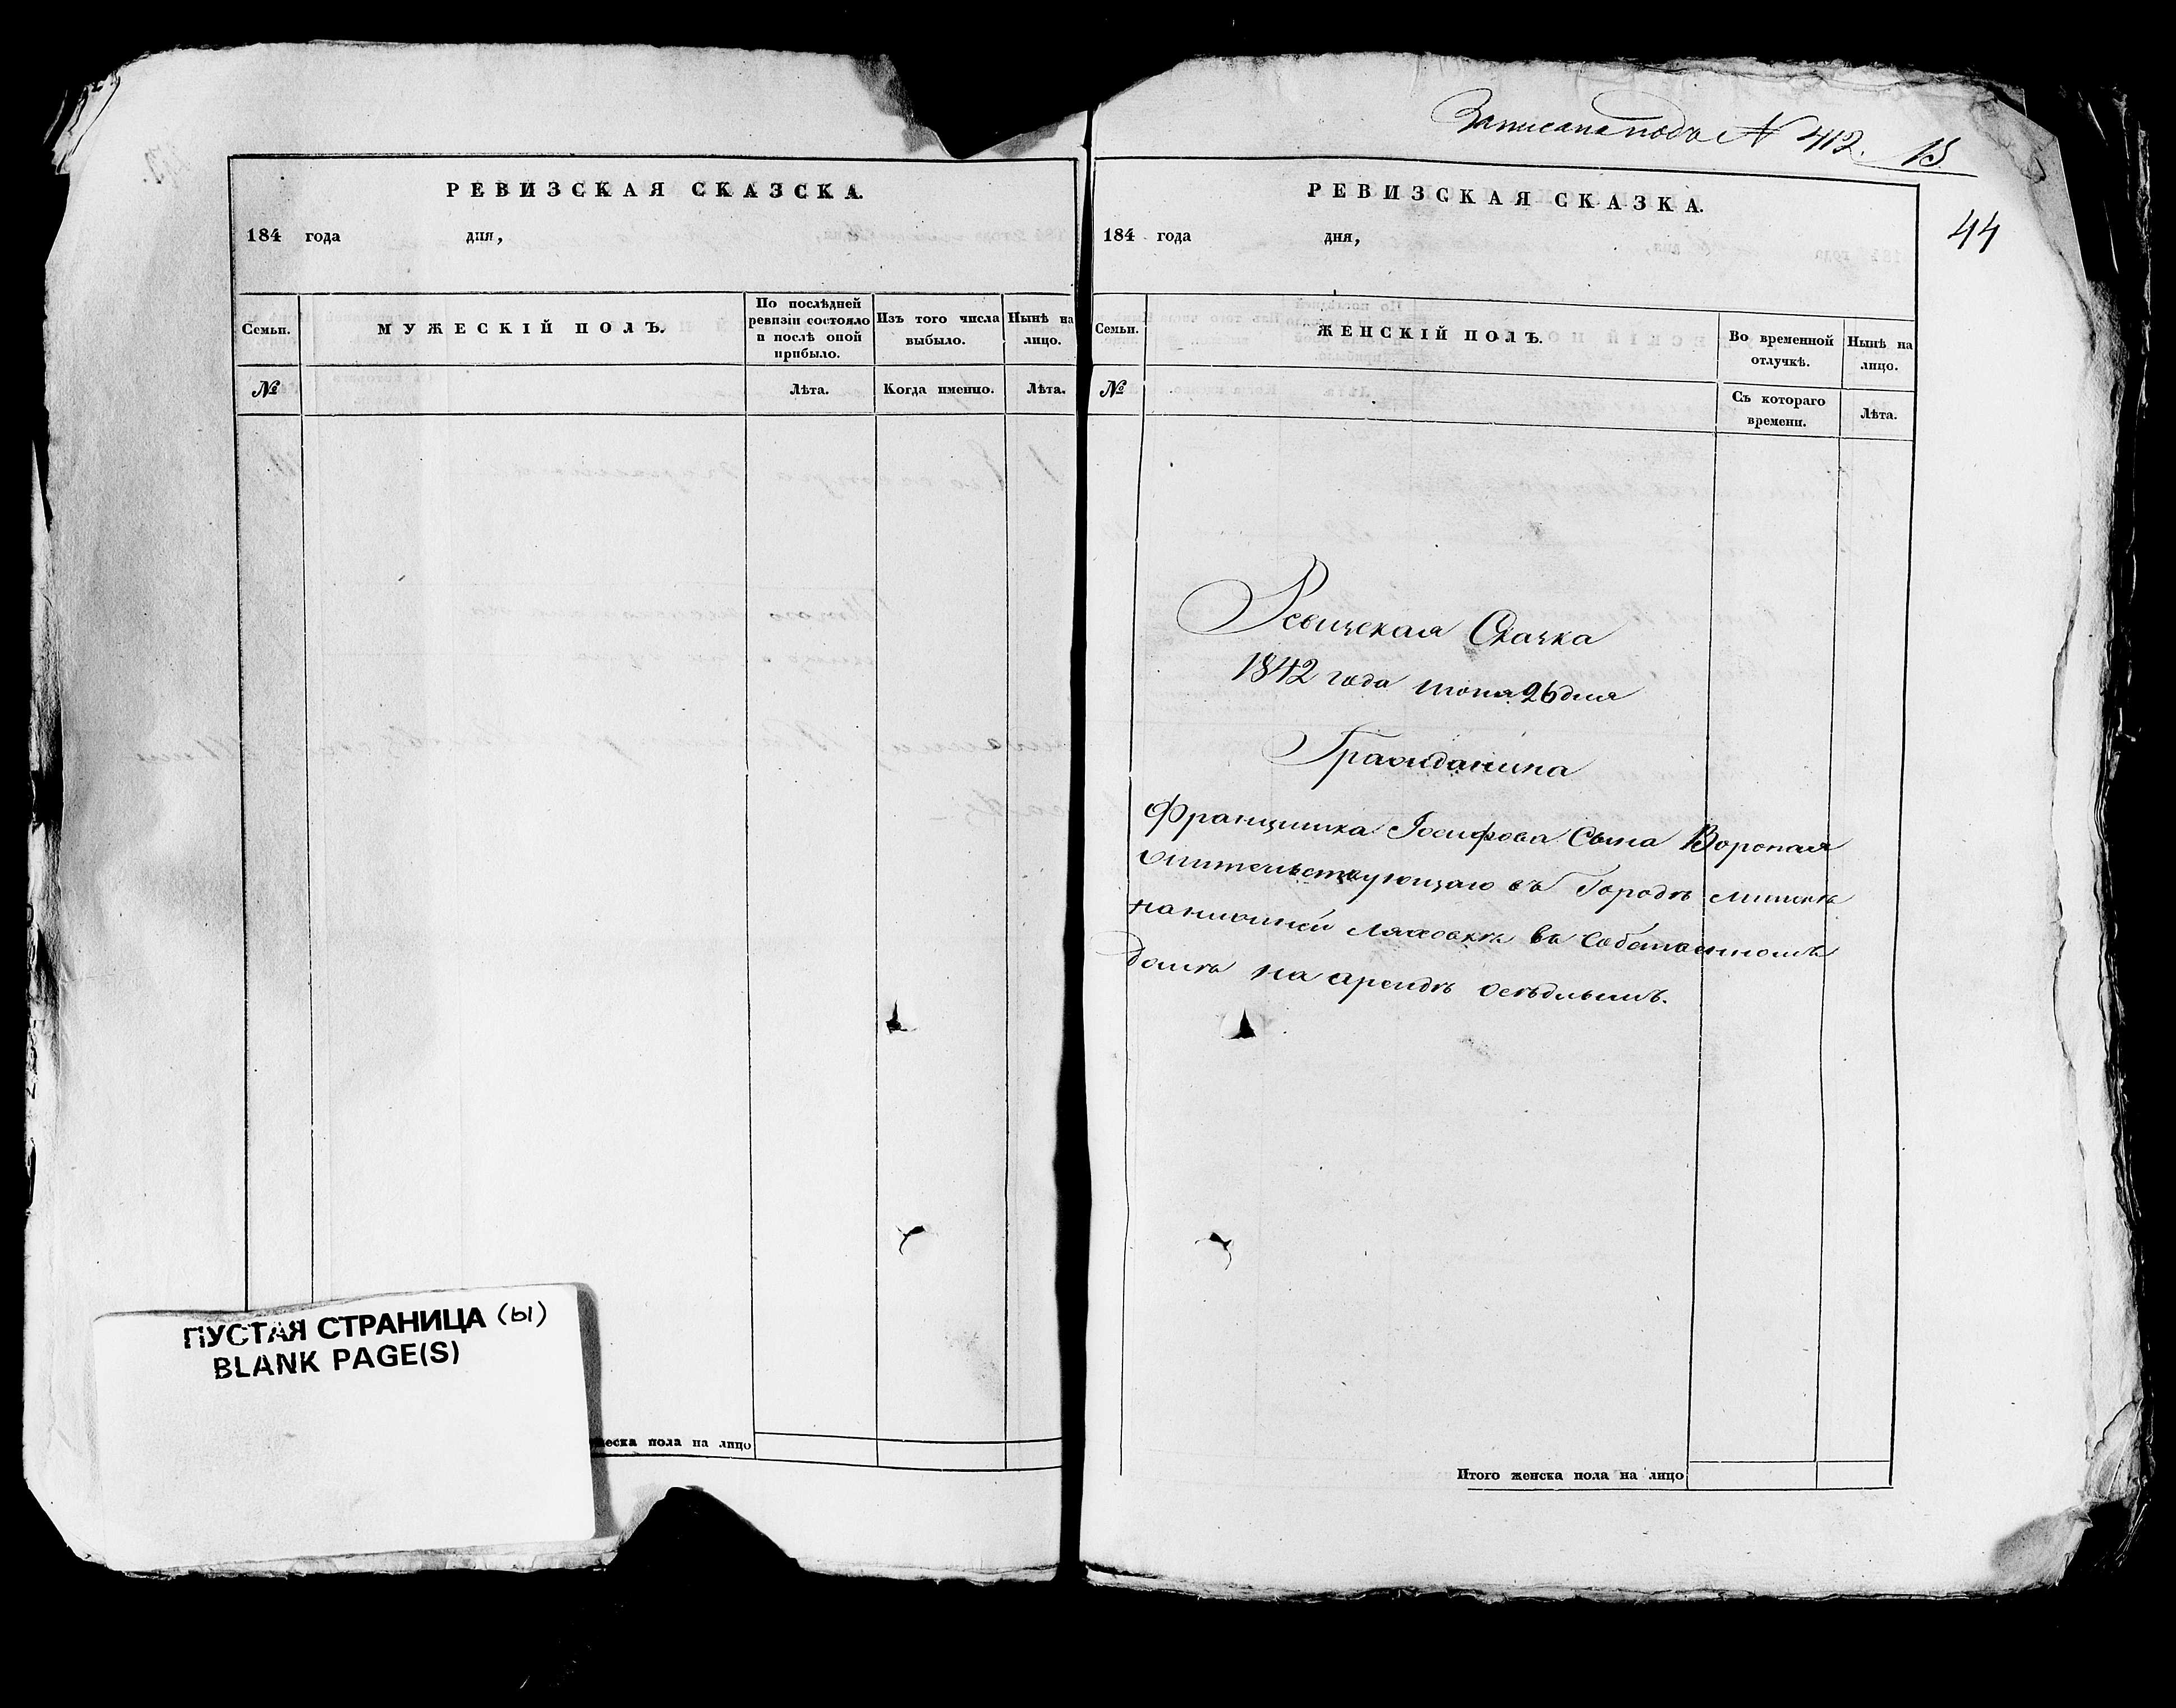 РЕВИЗСКАЯ СКАЗСКА.
184 года дня,
Семьи. МУЖЕСКІЙ ПОЛЪ. По послѣдней ревизіи состояло и послѣ оной прибыло. Изъ того числа выбыло. Нынѣ на лицо.
№ Лѣта. Когда именно. Лѣта.
ПУСТАЯ СТРАНИЦА (ы)
BLANK PAGE(S)
жеска пола на лицо
Записана подъ № 412. 15.
44
РЕВИЗСКАЯ СКАЗКА.
184 года дня,
Семьи. ЖЕНСКІЙ ПОЛЪ. Во временной отлучкѣ. Нынѣ на лицо.
№ Съ котораго времени. Лѣта.
Ревизская Сказка
1842 года июня 26 дня
Гражданина
Францишка Іосифова Сына Воропая
жительствующаго въ Городѣ Минскѣ
на нижней Ляховкѣ въ Собственномъ
домѣ на арендѣ осѣдлымъ.
Итого женска пола на лицо